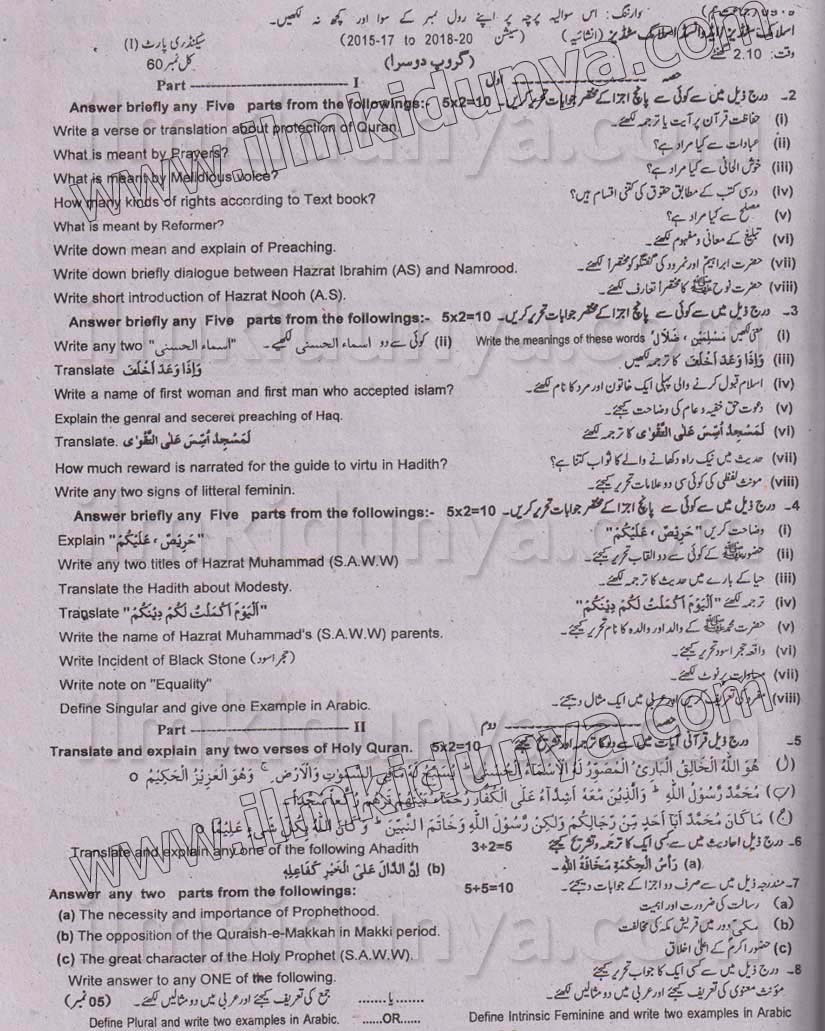 وارننگ: اس سوالیہ پرچہ پر اپنے رول نمبر کے سوا اور کچھ نہ لکھیں۔
اسلامک سٹڈیز (انشائیہ) (سیشن 2015-17 to 2018-20) سیکنڈری پارٹ (I)
وقت: 2.10 گھنٹے (گروپ دوسرا) کل نمبر 60
حصہ اول Part I
2۔ درج ذیل میں سے کوئی سے پانچ اجزا کے مختصر جوابات تحریر کریں۔ 5x2=10 Answer briefly any Five parts from the followings:-
(i) حفاظت قرآن پر آیت یا ترجمہ لکھئے۔ Write a verse or translation about protection of Quran.
(ii) عبادات سے کیا مراد ہے؟ What is meant by Prayers?
(iii) خوش الحانی سے کیا مراد ہے؟ What is meant by Melidious voice?
(iv) درسی کتب کے مطابق حقوق کی کتنی اقسام ہیں؟ How many kinds of rights according to Text book?
(v) مصلح سے کیا مراد ہے؟ What is meant by Reformer?
(vi) تبلیغ کے معانی و مفہوم لکھئے۔ Write down mean and explain of Preaching.
(vii) حضرت ابراہیمؑ اور نمرود کی گفتگو کو مختصراً لکھئے۔ Write down briefly dialogue between Hazrat Ibrahim (AS) and Namrood.
(viii) حضرت نوح ﷺ کا مختصراً تعارف لکھئے۔ Write short introduction of Hazrat Nooh (A.S).
3۔ درج ذیل میں سے کوئی سے پانچ اجزا کے مختصر جوابات تحریر کریں۔ 5x2=10 Answer briefly any Five parts from the followings:-
(i) معنی لکھیں مُسْلِمِیْن ، ضَلَال Write the meanings of these words (ii) کوئی سے دو اسماء الحسنی لکھیے۔ Write any two "اسماء الحسنی"
(iii) وَاِذَا وَعَدَ اَخْلَفَ کا ترجمہ لکھیں Translate وَاِذَا وَعَدَ اَخْلَفَ
(iv) اسلام قبول کرنے والی پہلی ایک خاتون اور مرد کا نام لکھئے۔ Write a name of first woman and first man who accepted islam?
(v) دعوت حق خفیہ و عام کی وضاحت کیجئے۔ Explain the genral and seceret preaching of Haq.
(vi) لَمَسْجِدٌ اُسِّسَ عَلَى التَّقْوٰى کا ترجمہ لکھئے Translate. لَمَسْجِدٌ اُسِّسَ عَلَى التَّقْوٰى
(vii) حدیث میں نیک راہ دکھانے والے کا ثواب کتنا ہے؟ How much reward is narrated for the guide to virtu in Hadith?
(viii) مونث لفظی کی کوئی سی دو علامات تحریر کیجئے۔ Write any two signs of litteral feminin.
4۔ درج ذیل میں سے کوئی سے پانچ اجزا کے مختصر جوابات تحریر کریں۔ 5x2=10 Answer briefly any Five parts from the followings:-
(i) وضاحت کریں "حَرِیْصٌ ، عَلَیْکُمْ" Explain "حَرِیْصٌ ، عَلَیْکُمْ"
(ii) حضور ﷺ کے کوئی سے دو القاب تحریر کیجئے۔ Write any two titles of Hazrat Muhammad (S.A.W.W)
(iii) حیا کے بارے میں حدیث کا ترجمہ لکھئے۔ Translate the Hadith about Modesty.
(iv) ترجمہ لکھئے "اَلْیَوْمَ اَکْمَلْتُ لَکُمْ دِیْنَکُمْ" Translate "اَلْیَوْمَ اَکْمَلْتُ لَکُمْ دِیْنَکُمْ"
(v) حضرت محمد ﷺ کے والد اور والدہ کا نام تحریر کیجئے۔ Write the name of Hazrat Muhammad's (S.A.W.W) parents.
(vi) واقعہ حجر اسود تحریر کیجئے۔ Write Incident of Black Stone (حجر اسود)
(vii) مساوات پر نوٹ لکھئے۔ Write note on "Equality"
(viii) مفرد کی تعریف کریں اور عربی میں ایک مثال دیجئے۔ Define Singular and give one Example in Arabic.
حصہ دوم Part II
5۔ درج ذیل قرآنی آیات میں سے دو کا ترجمہ اور تشریح کیجئے 5x2=10 Translate and explain any two verses of Holy Quran.
(ا) هُوَ اللّٰهُ الْخَالِقُ الْبَارِئُ الْمُصَوِّرُ لَهُ الْاَسْمَآءُ الْحُسْنٰى ؕ یُسَبِّحُ لَهٗ مَا فِی السَّمٰوٰتِ وَالْاَرْضِ ۚ وَهُوَ الْعَزِیْزُ الْحَكِیْمُ ○
(ب) مُحَمَّدٌ رَّسُوْلُ اللّٰهِ ؕ وَالَّذِیْنَ مَعَهٗۤ اَشِدَّآءُ عَلَى الْكُفَّارِ رُحَمَآءُ بَیْنَهُمْ تَرٰىهُمْ رُكَّعًا سُجَّدًا۔
(ج) مَا كَانَ مُحَمَّدٌ اَبَآ اَحَدٍ مِّنْ رِّجَالِكُمْ وَلٰكِنْ رَّسُوْلَ اللّٰهِ وَخَاتَمَ النَّبِیّٖنَ ؕ وَكَانَ اللّٰهُ بِكُلِّ شَیْءٍ عَلِیْمًا
6۔ درج ذیل احادیث میں سے کسی ایک کا ترجمہ و تشریح کیجئے 3+2=5 Translate and explain any one of the following Ahadith
(a) رَأْسُ الْحِكْمَةِ مَخَافَةُ اللّٰهِ۔ (b) اِنَّ الدَّالَّ عَلَى الْخَیْرِ كَفَاعِلِهٖ
7۔ مندرجہ ذیل میں سے صرف دو اجزا کے جوابات دیجئے۔ 5+5=10 Answer any two parts from the followings:
(a) رسالت کی ضرورت اور اہمیت (a) The necessity and importance of Prophethood.
(b) مکی دور میں قریش مکہ کی مخالفت (b) The opposition of the Quraish-e-Makkah in Makki period.
(c) حضور اکرمؐ کے اعلیٰ اخلاق (c) The great character of the Holy Prophet (S.A.W.W).
8۔ درج ذیل میں سے کسی ایک کا جواب تحریر کیجئے Write answer to any ONE of the following.
مؤنث معنوی کی تعریف کیجئے اور عربی میں دو مثالیں لکھئے۔ .......یا....... جمع کی تعریف کیجئے اور عربی میں دو مثالیں لکھئے۔ (05 نمبر)
Define Plural and write two examples in Arabic. ......OR...... Define Intrinsic Feminine and write two examples in Arabic
www.ilmkidunya.com
ilmkidunya.com
ilmkidunya.com
ilmkidunya.com
www.ilmkidunya.com
ilmkidunya.com